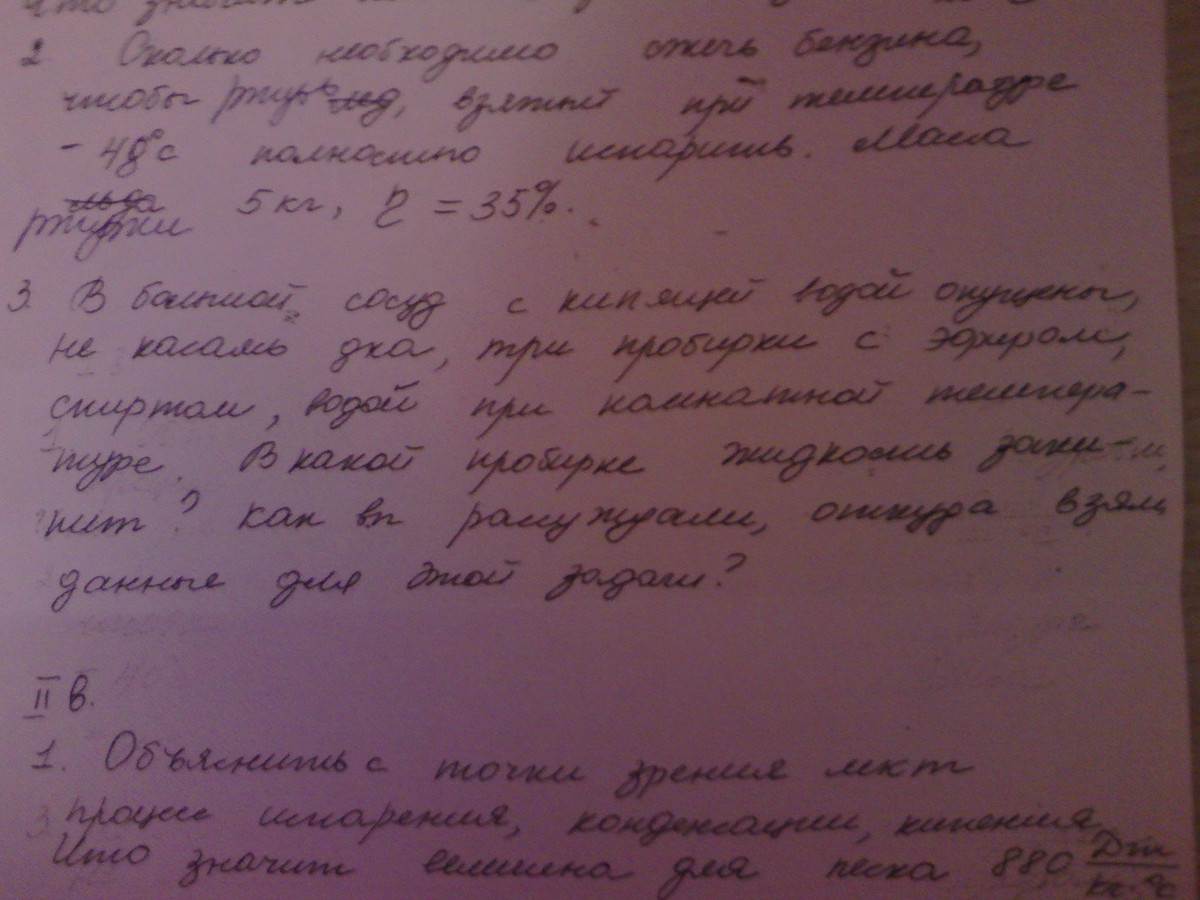 Что значит
2. Сколько необходимо сжечь бензина,
чтобы ртуть лед, взятый при температуре
- 48°с полностью испарить. Масса
льда ртутки 5 кг, η = 35%.
3. В большой сосуд с кипящей водой опущены,
не касаясь дна, три пробирки с эфиром,
спиртом, водой при комнатной темпера-
туре. В какой пробирке жидкость заки-
пит? Как вы рассуждали, откуда взяли
данные для этой задачи?
II в.
1. Объяснить с точки зрения мкт
процесс испарения, конденсации, кипения.
Что значит величина для песка 880 Дж/кг·°с